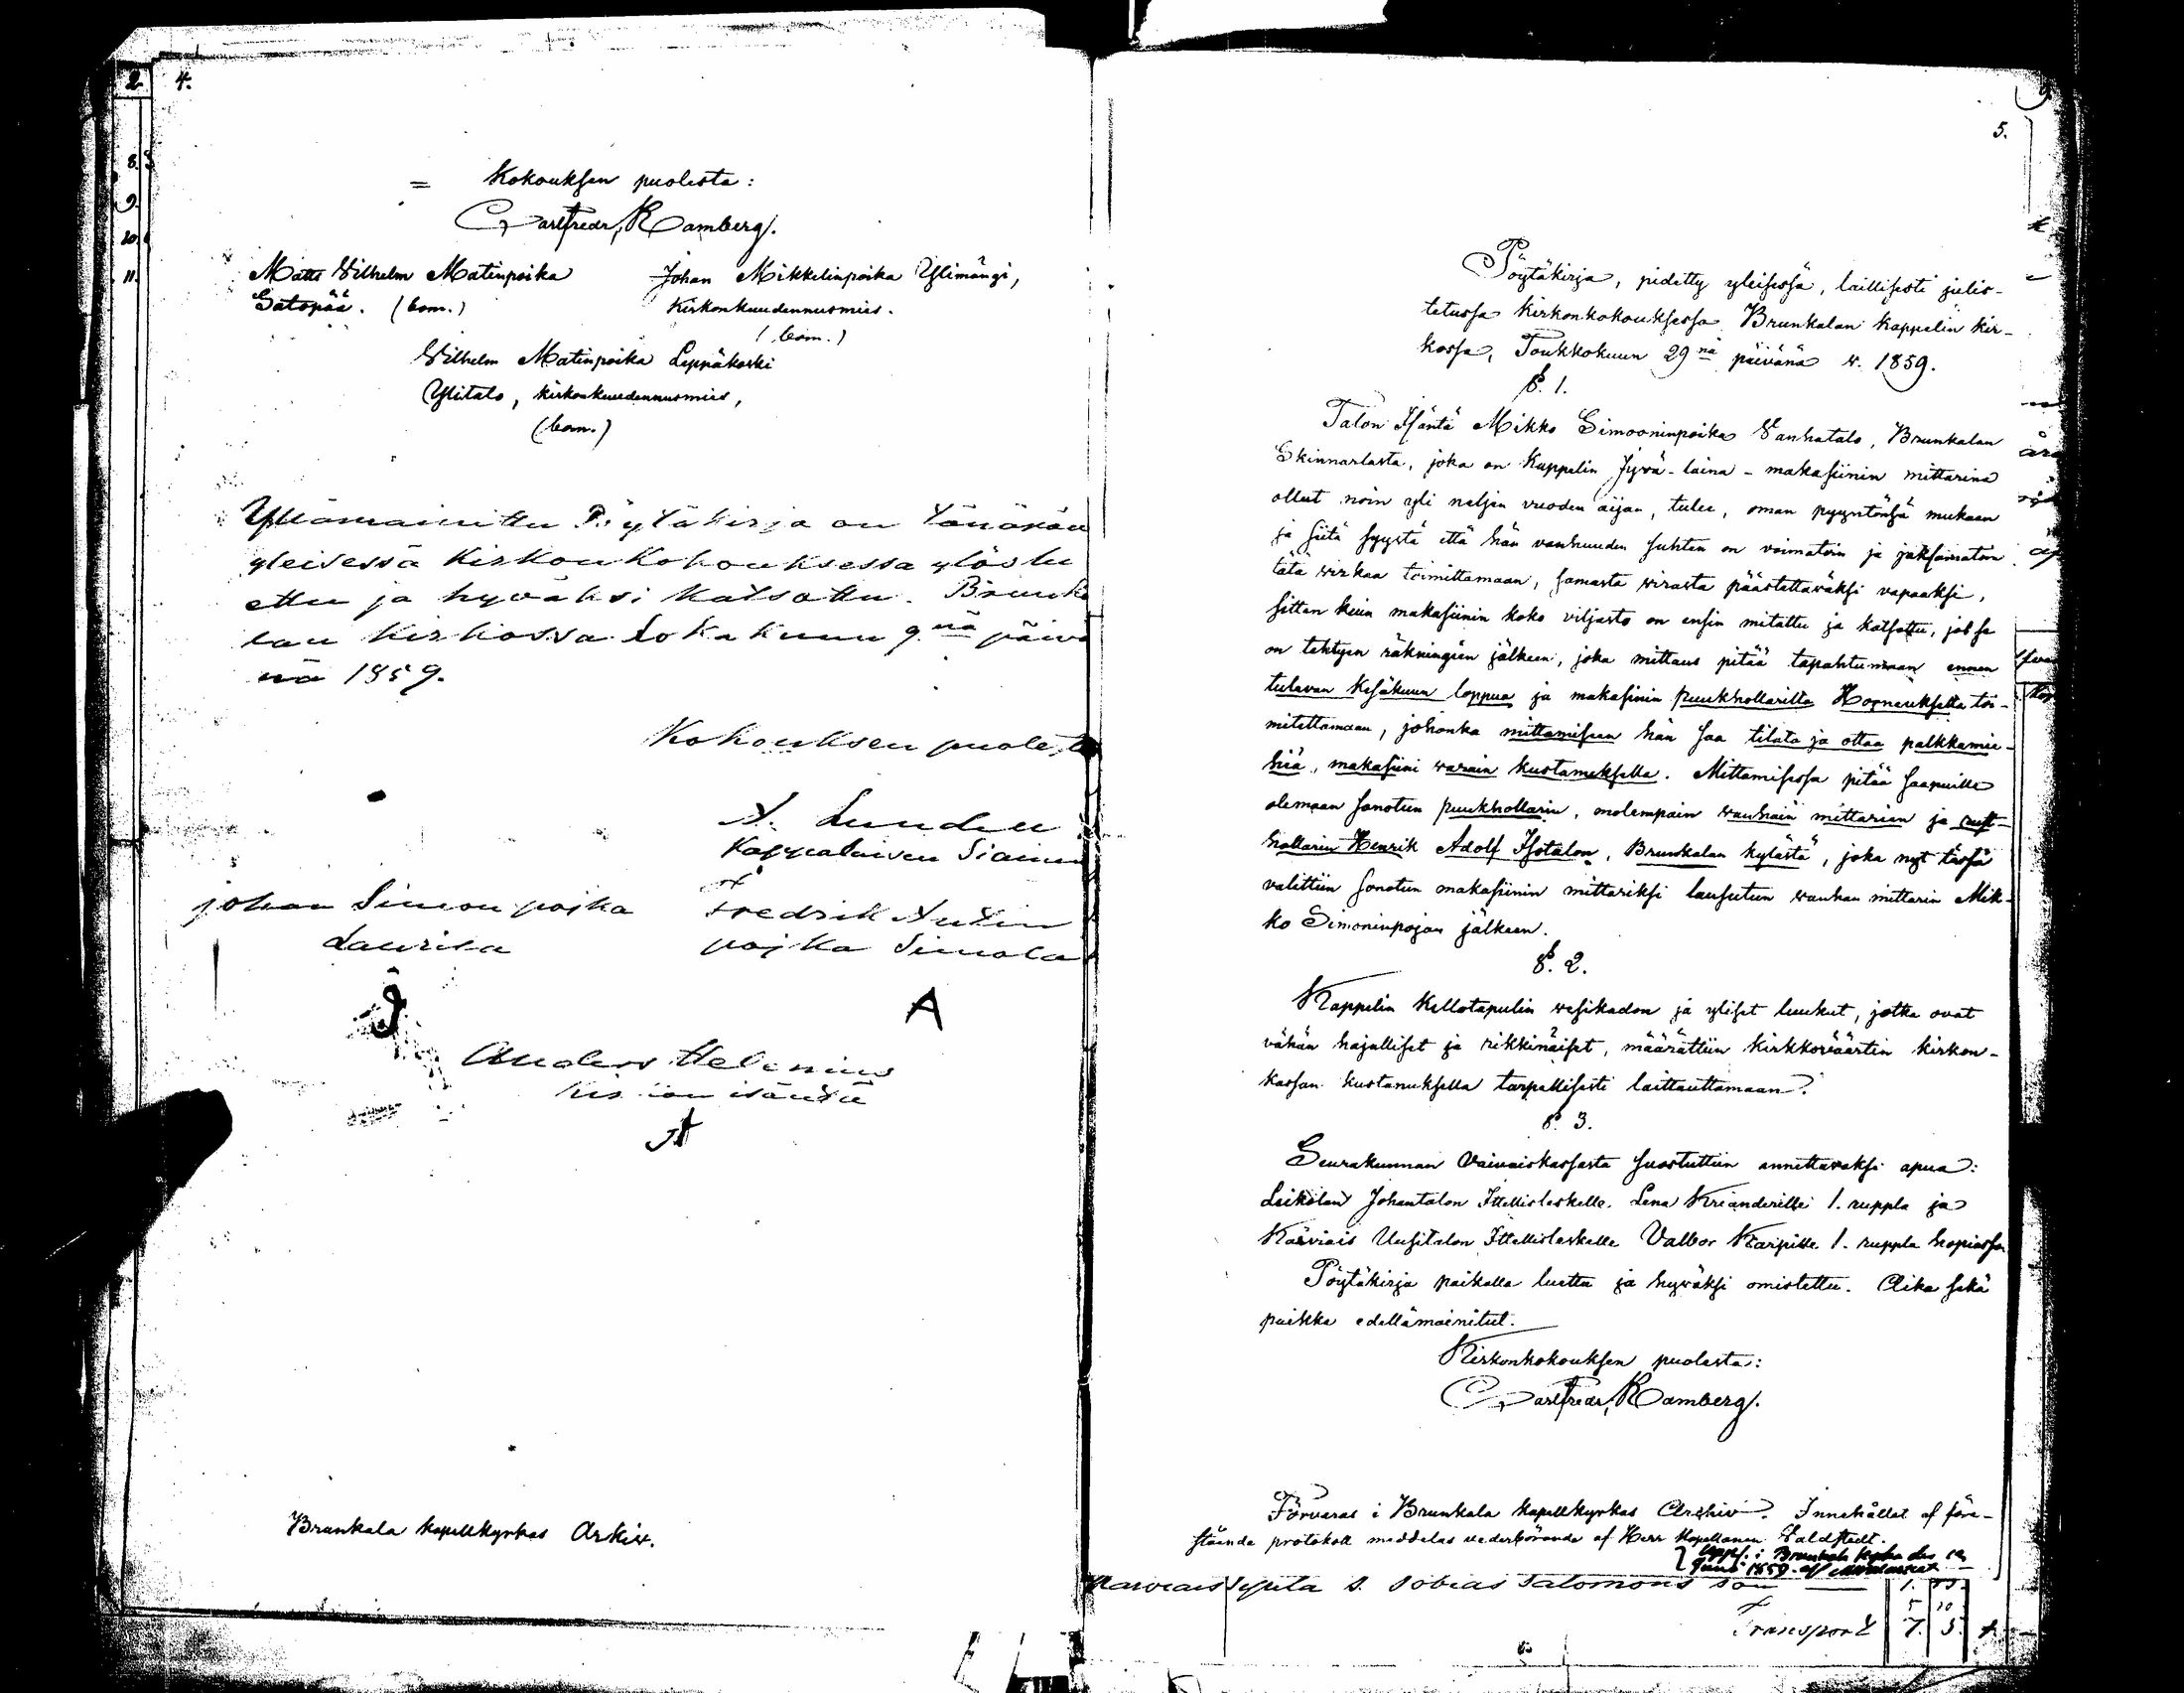 4.
= Kokouksen puolesta:
Carl Fredr. Ramberg.
Matts Vilhelm Matinpoika
Satopää. (bom.)
Johan Mikkelinpoika Ylimängi,
Kirkonkuudennusmies.
(bom.)
Vilhelm Matinpoika Leppäkoski
Ylitalo, kirkonkuudennusmies,
(bom.)
Yllämainittu Pöytäkirja on tänäpän
yleisessä Kirkonkokouksessa ylöslu
ettu ja hyväksi katsottu. Brunka
lan Kirkossa Lokakuun 9nä päivä
nä 1859.
Kokouksen puolesta
A. Lundell
Kappalaisen Siainen
Johan Simon poika
Laurila
Fredrik Antin
poika Simola
J
A
Anders Helenius
isäntä
Brunkala kapellkyrkas Arkiv.
5.
Pöytäkirja, pidetty yleisessä, laillisesti julis-
tetussa kirkonkokouksessa Brunkalan kappelin kir-
kossa, Toukkokuun 29nä päivänä v. 1859.
§. 1.
Talon Isäntä Mikko Simooninpoika Vanhatalo, Brunkalan
Skinnarlasta, joka on Kappelin Jyvä-laina-makasiinin mittarina
ollut noin yli neljän vuoden aijan, tulee, oman pyyntönsä mukaan
ja siitä syystä että hän vanhuuden suhten on voimatoin ja jaksamatoin
tätä wirkaa toimittamaan, samasta wirasta päästettäwäksi vapaaksi,
sitten kuin makasiinin koko viljasto on ensin mitattu ja katsottu, jos se
on tehtyen räkningien jälkeen, joka mittaus pitää tapahtumaan ennen
tulevan Kesäkuun loppua ja makasinin puukhollarilta Horneukselta toi-
mitettamaan, johonka mittamiseen hän saa tilata ja ottaa palkkamie-
hiä, makasiini warain kustannuksella. Mittamisessa pitää saapuilla
olemaan sanotun puukhollarin, molempain wanhain mittarien ja rust-
hollarin Henrik Adolf Isotalon, Brunkalan kylästä, joka nyt tässä
valittiin sanotun makasiinin mittariksi lausutun wanhan mittarin Mik-
ko Simoninpojan jälkeen.
§. 2.
Kappelin Kellotapulin vesikadon ja yliset luukut, jotka ovat
vähän hajalliset ja rikkinäiset, määrättiin kirkkoväärtin kirkon-
kassan kustanuksella tarpellisesti laittauttamaan.
§. 3.
Seurakunnan Vaivaiskassasta suostuttiin annettavaksi apua:
Leikolan Johantalon Ittellisleskelle Lena Krianderille 1. ruppla ja
Karviais Uusitalon Ittellisleskelle Valbor Karpille 1. ruppla hopiassa
Pöytäkirja paikalla luettu ja hyväksi omistettu. Aika sekä
paikka edellämainitut.
Kirkonkokouksen puolesta:
Carl Fredr. Ramberg.
Förvaras i Brunkala kapellkyrkas Archiv. Innehållet af före-
stående protokoll meddelas vederbörande af Herr Kapellanen Zaldstedt.
Uppl. i Brunkala kyrka den 12
Juni 1859 af
Karviais Sepila S. Tobias Salomons son
Transport 7. 5.